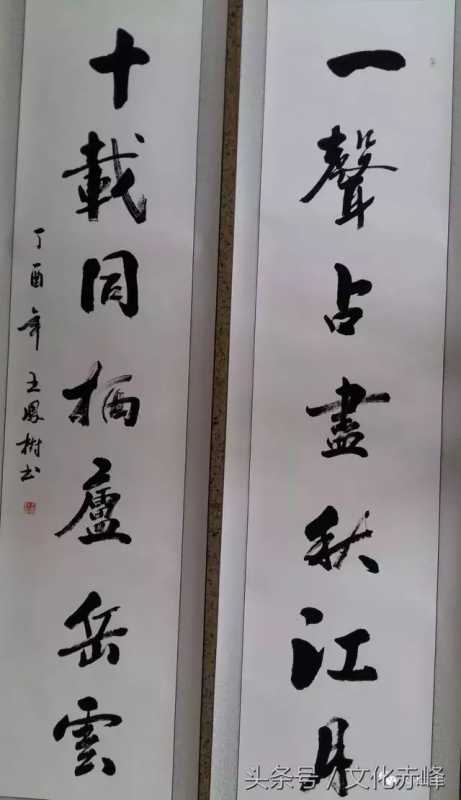 一聲占盡秋江月
十載同栖廬岳雲
丁酉年王鳳樹书
头条号 / 文化赤峰